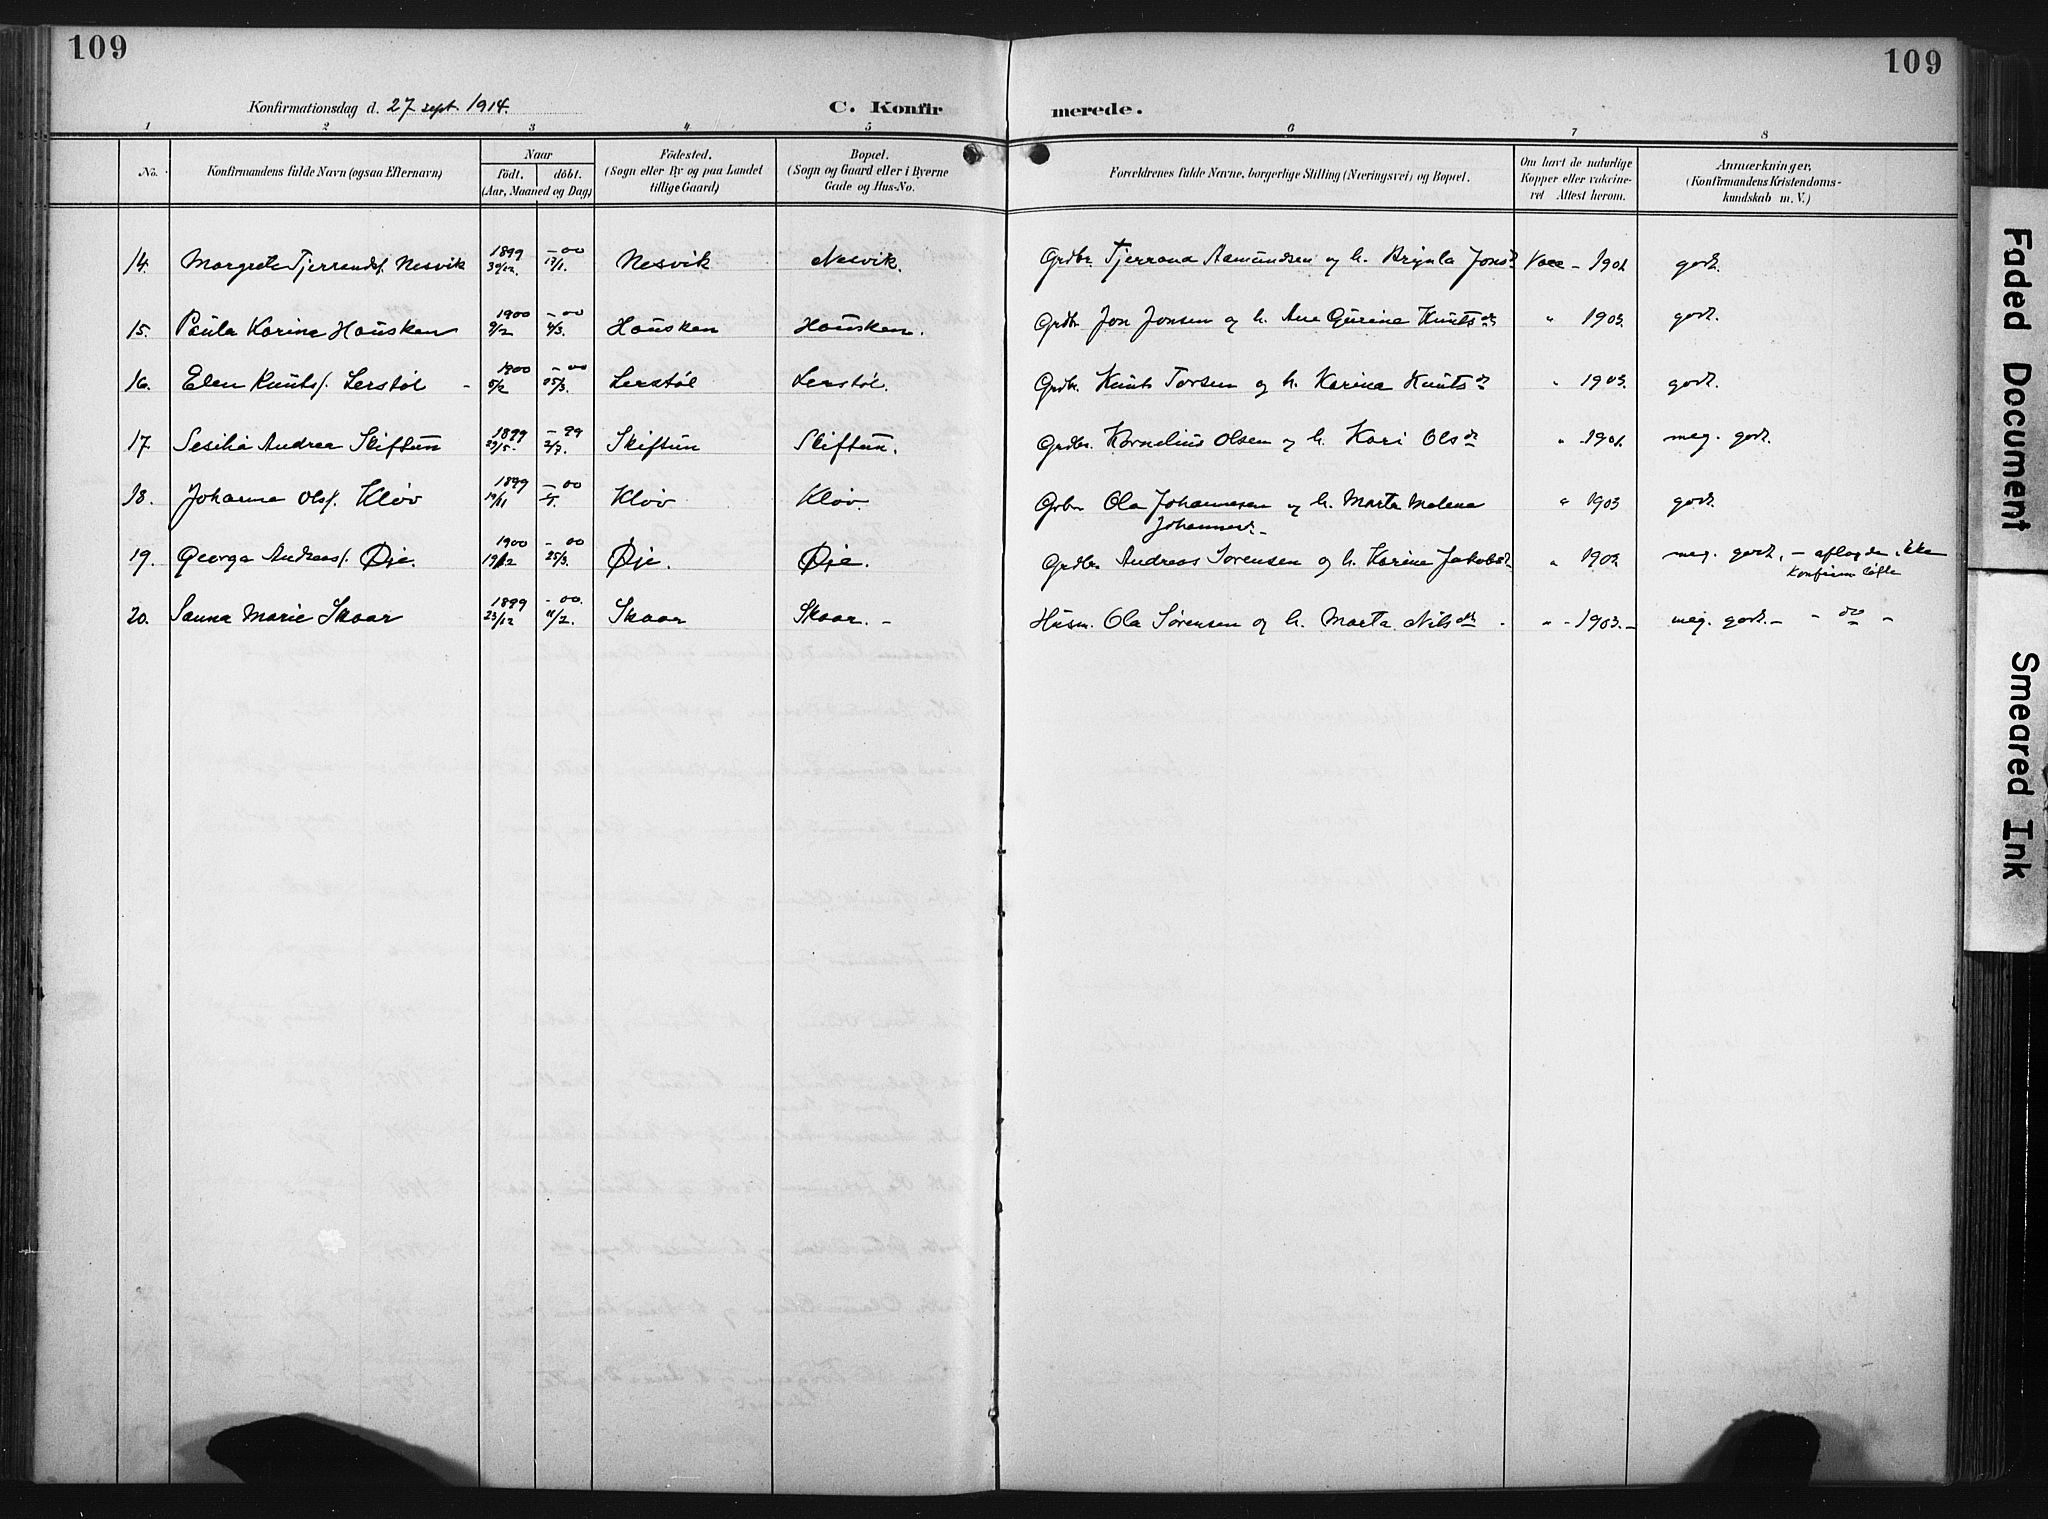 109
109
Konfirmationsdag d. 27 sept. 1914.
C. Konfirmerede.
1 2 3 4 5 6 7 8
No.
Konfirmandens fulde Navn (ogsaa Efternavn)
Naar
födt. döbt.
(Aar, Maaned og Dag)
Födested.
(Sogn eller By og paa Landet
tillige Gaard)
Bopæl.
(Sogn og Gaard eller i Byerne
Gade og Hus-No.
Forældrenes fulde Navne, borgerlige Stilling (Næringsvei) og Bopæl.
Om havt de naturlige
Kopper eller vakcine-
ret Attest herom.
Anmærkninger,
(Konfirmandens Kristendoms-
kundskab m. V.)
14. Margrete Tjerrandsf. Nesvik 1899 30/12 – 00 Nesvik Nesvik. Grdbr. Tjerrand Aamundsen og h. Brynla Jonsdr Vacc – 1901 godt.
15. Paula Karina Hausken 1900 9/2 – 00 4/3. Hausken Hausken. Grdbr Jon Jonsen og h. Ane Gurine Knutsdr " 1903. godt.
16. Elen Knutsf. Lerstøl 1900 5/2 – 00 Lerstøl Lerstøl. Grdbr. Knut Torsen og h. Karina Knutsdr " 1903. godt.
17. Sesilia Andrea Skiftun 1899 29/5. – 99 2/7. Skiftun Skiftun. Grdbr. Kornelius Olsen og h. Kari Olsdr " 1901. meg. godt.
18. Johanna Olsf. Kløv 1899 19/11 – 00 Kløv Kløv. Grbr Ola Johannesen og h. Marta Malena
Johannesd. " 1903 godt.
19. Georga Andreasf. Øje. 1900 – 00 25/3. Øje. Øje. Grdbr. Andreas Sørensen og h. Karine Jakobsdr " 1902 meg. godt, – aflagde ikke
Konfirm løfte
20. Sanna Marie Skaar 1899 23/12 – 00. 11/2. Skaar Skaar. – Husm. Ola Sørensen og h. Marta Nilsdr " – 1903. – meg. godt. – – do –
Faded Document
Smeared Ink